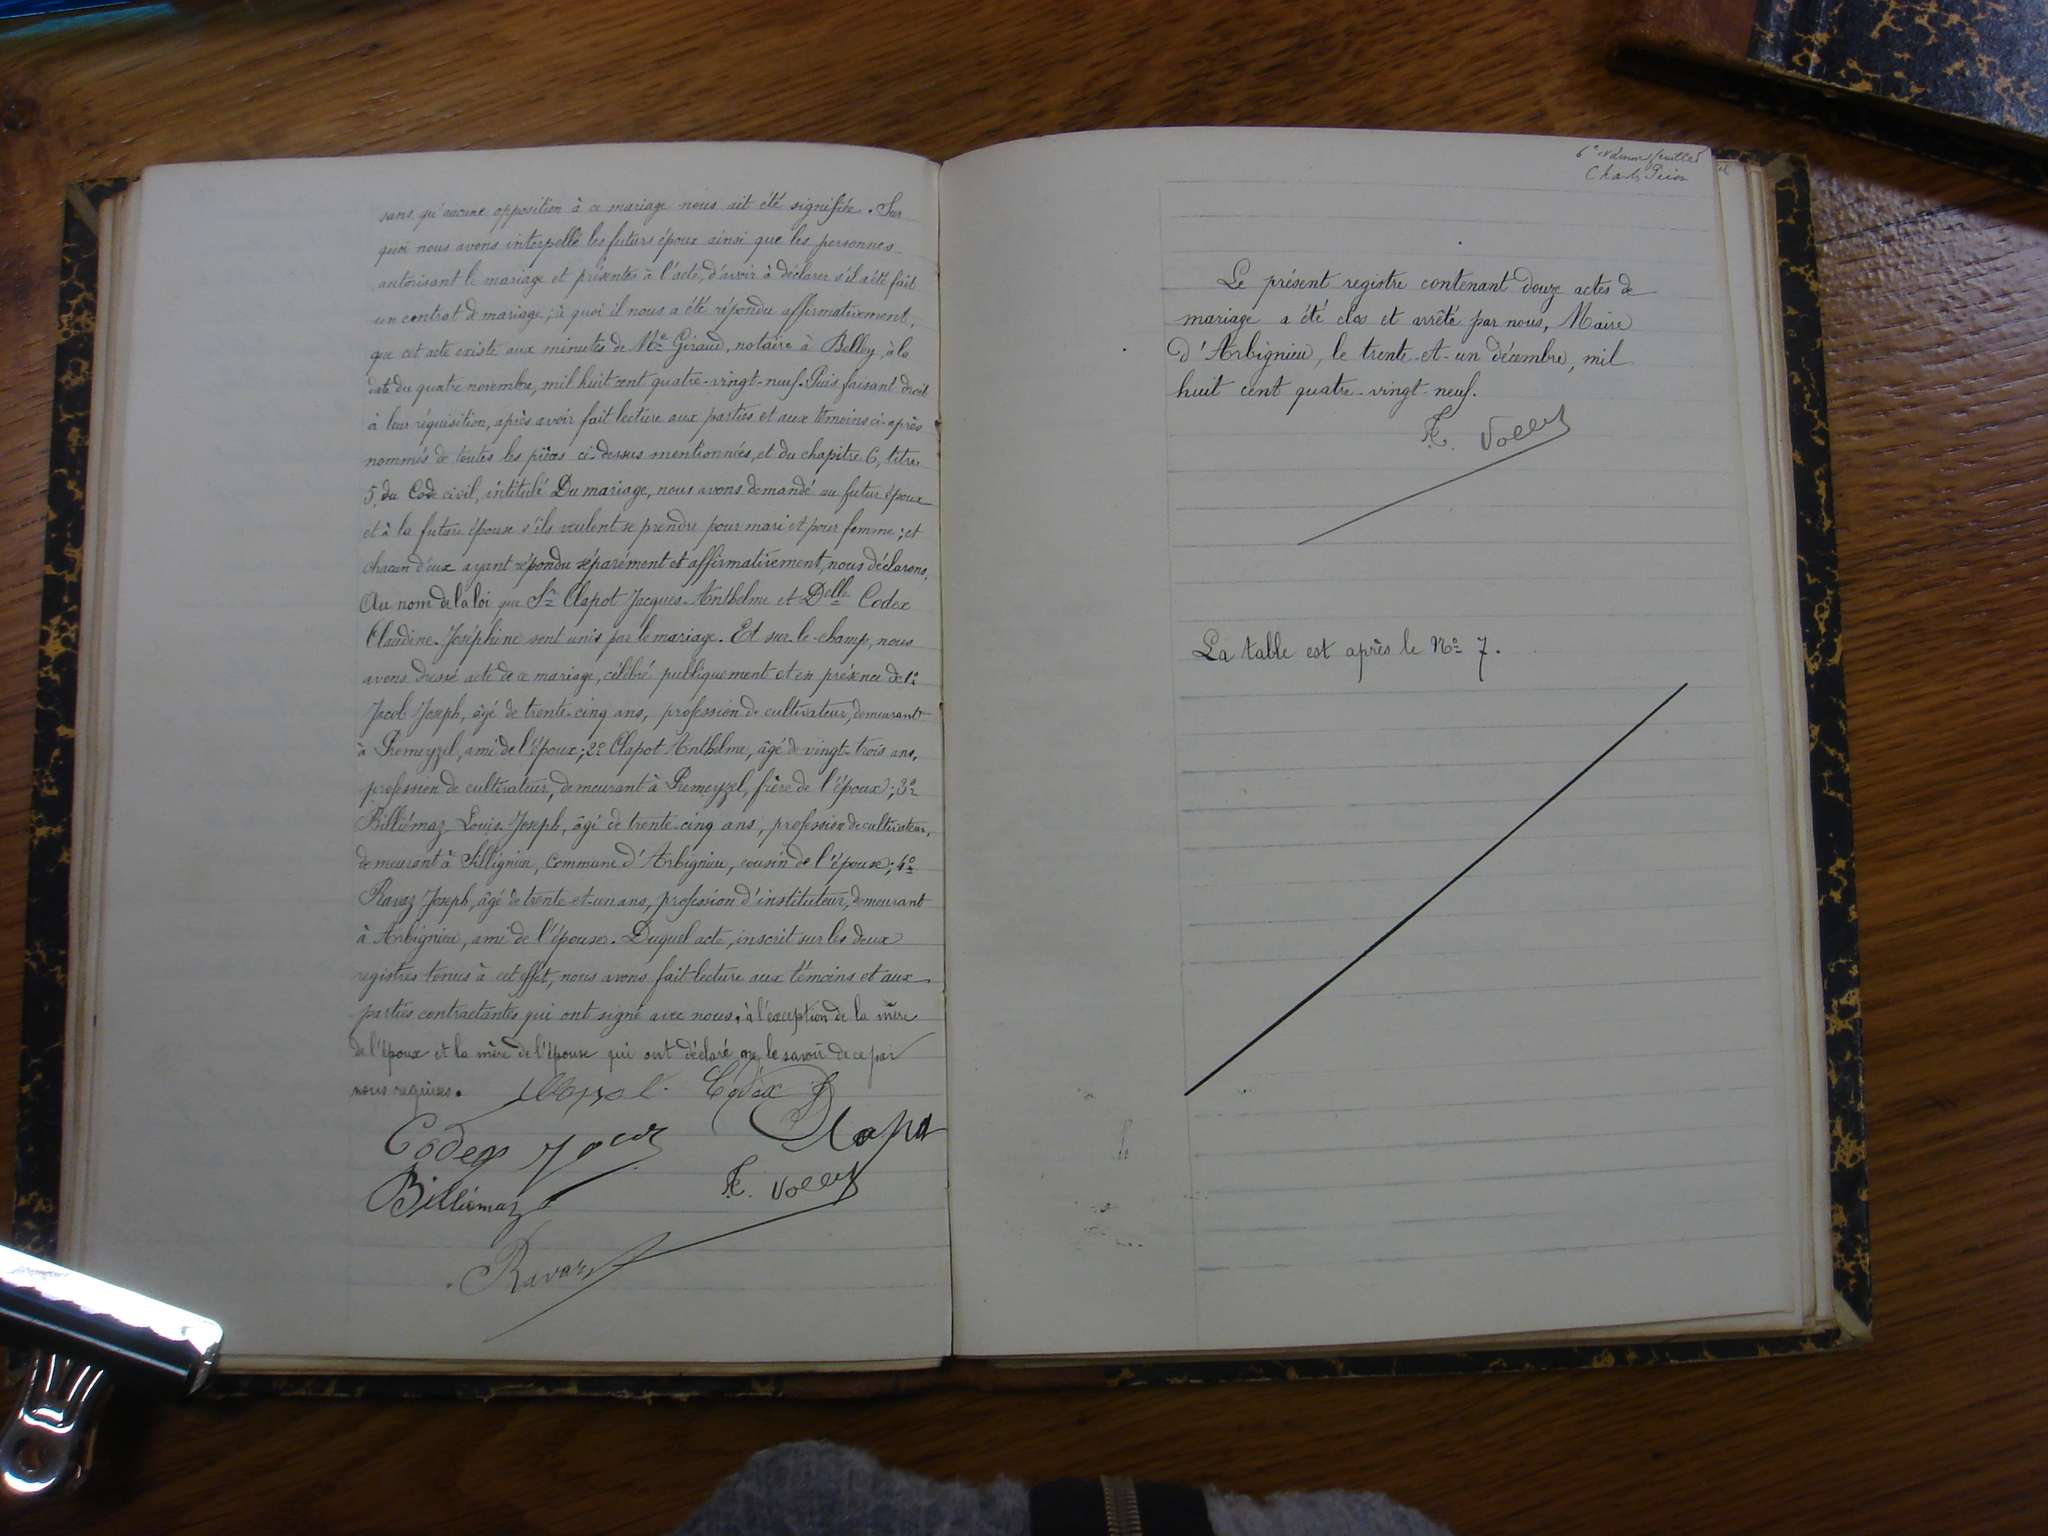 sans qu'aucune opposition à ce mariage nous ait été signifiée. Sur
quoi nous avons interpellé les futurs époux ainsi que les personnes
autorisant le mariage et présentes à l'acte, d'avoir à déclarer s'il a été fait
un contrat de mariage; à quoi il nous a été répondu affirmativement,
que cet acte existe aux minutes de Me Giraud, notaire à Belley, à la
date du quatre novembre, mil huit cent quatre-vingt-neuf. Puis faisant droit
à leur réquisition, après avoir fait lecture aux parties et aux témoins ci-après
nommés de toutes les pièces ci-dessus mentionnées, et du chapitre 6, titre
5, du Code civil, intitulé Du mariage, nous avons demandé au futur époux
et à la future épouse s'ils veulent se prendre pour mari et pour femme; et
chacun d'eux ayant répondu séparément et affirmativement, nous déclarons,
Au nom de la loi que Sr Clapot Jacques-Anthelme et Delle Codex
Claudine-Joséphine sont unis par le mariage. Et sur-le-champ, nous
avons dressé acte de ce mariage, célébré publiquement et en présence de 1o
Jacob Joseph, âgé de trente-cinq ans, profession de cultivateur, demeurant
à Premeyzel, ami de l'époux; 2o Clapot Anthelme, âgé de vingt-trois ans,
profession de cultivateur, demeurant à Premeyzel, frère de l'époux; 3o
Billiémaz Louis-Joseph, âgé de trente-cinq ans, profession de cultivateur,
demeurant à Sillignin, commune d'Arbignieu, cousin de l'épouse; 4o
Ravaz Joseph, âgé de trente-et-un ans, profession d'instituteur, demeurant
à Arbignieu, ami de l'épouse. Duquel acte, inscrit sur les deux
registres tenus à cet effet, nous avons fait lecture aux témoins et aux
parties contractantes qui ont signé avec nous, à l'exception de la mère
de l'époux et la mère de l'épouse qui ont déclaré ne le savoir de ce par
nous requises.
Codex
Codex
Clapot
Billiémaz
F. Vollet
Ravaz
6e et dernier feuillet
Le présent registre contenant douze actes de
mariage a été clos et arrêté par nous, Maire
d'Arbignieu, le trente-et-un décembre, mil
huit cent quatre-vingt-neuf.
F. Vollet
La table est après le No 7.